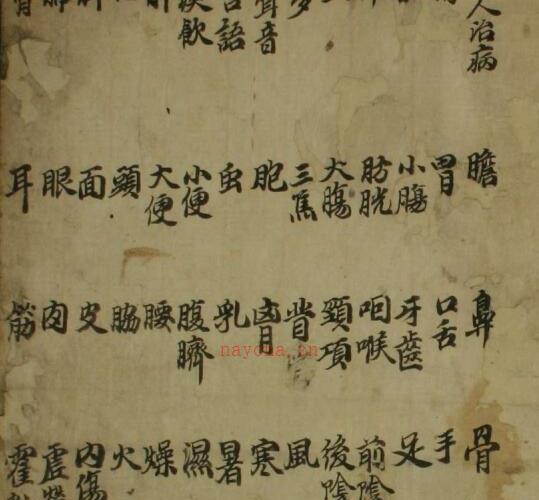 人治病 聲音 言語 痰飲
膽 胃 小腸 膀胱 大腸 三焦 胞 虫 小便 大便 頭 面 眼 耳
鼻 口舌 牙齒 咽喉 頸項 背 胷 乳 腹臍 腰 脇 皮 肉 筋
骨 手 足 前陰 後陰 風 寒 暑 濕 燥 火 內傷 虛 霍
nayona.cn